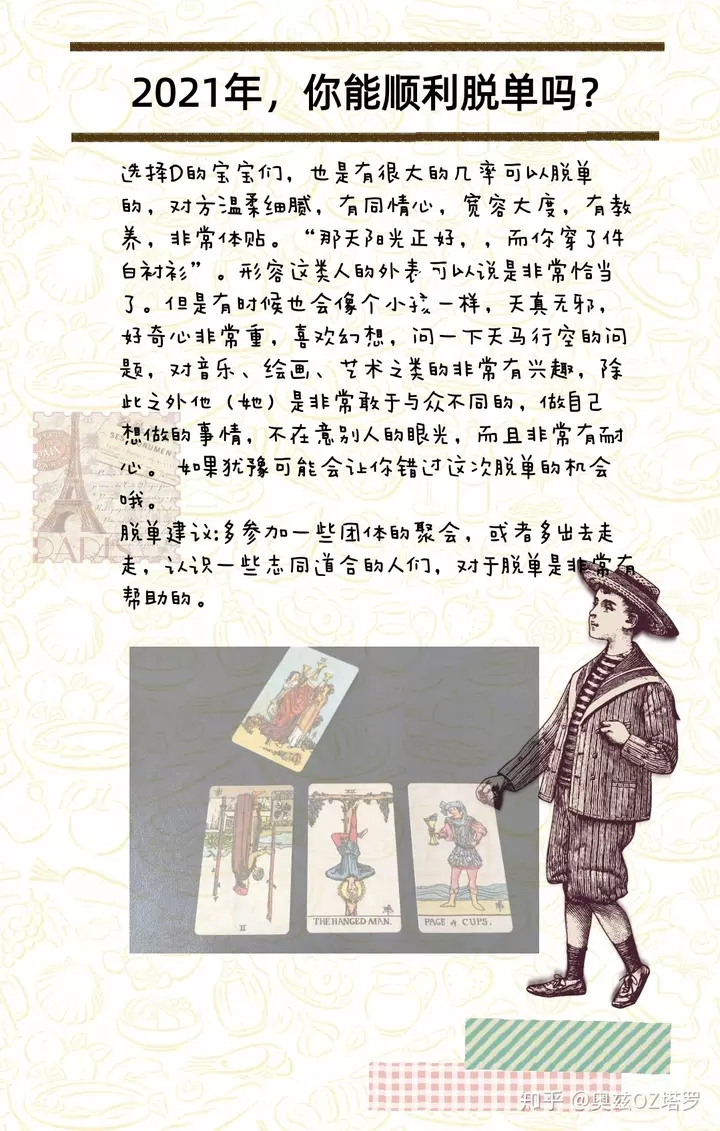 2021年，你能顺利脱单吗？
选择D的宝宝们，也是有很大的几率可以脱单
的，对方温柔细腻，有同情心，宽容大度，有教
养，非常体贴。“那天阳光正好，，而你穿了件
白衬衫”。形容这类人的外表可以说是非常恰当
了。但是有时候也会像个小孩一样，天真无邪，
好奇心非常重，喜欢幻想，问一下天马行空的问
题，对音乐、绘画、艺术之类的非常有兴趣，除
此之外他（她）是非常敢于与众不同的，做自己
想做的事情，不在意别人的眼光，而且非常有耐
心。 如果犹豫可能会让你错过这次脱单的机会
哦。
脱单建议:多参加一些团体的聚会，或者多出去走
走，认识一些志同道合的人们，对于脱单是非常有
帮助的。
PARIS
II
XII
THE HANGED MAN.
PAGE of CUPS.
知乎 @奥兹OZ塔罗